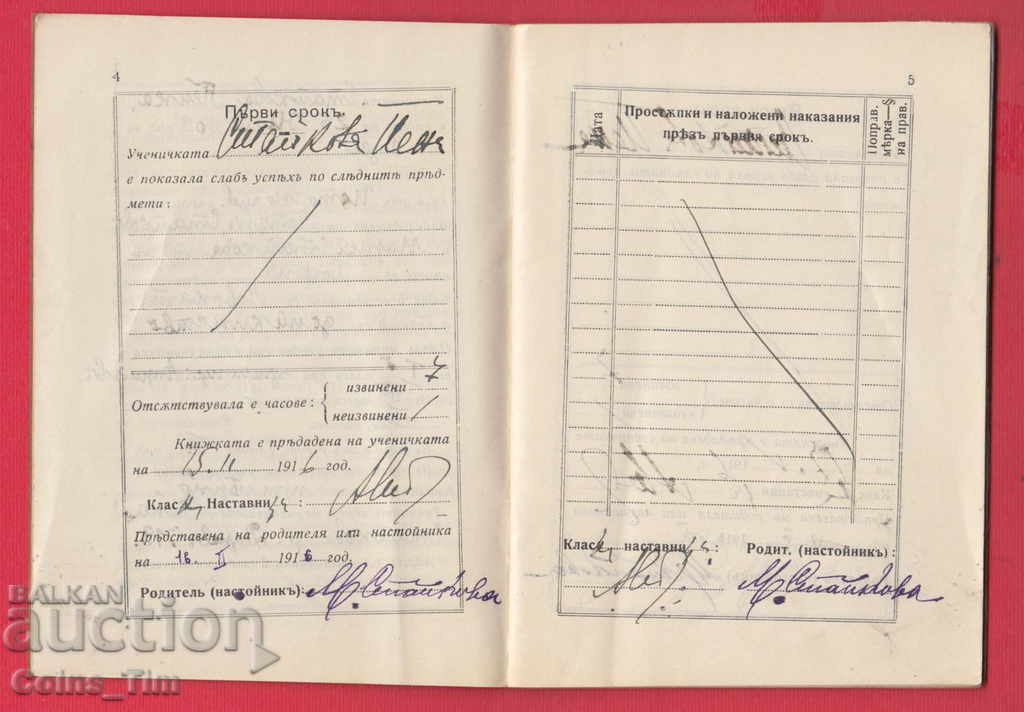 4
Първи срокъ.
Ученичката Стайкова
е показала слабъ успѣхъ по слѣднитѣ прѣд-
мети:
Отсѫтствувала е часове:
извинени 7
неизвинени /
Книжката е прѣдадена на ученичката
на 15.II 1916 год.
Клас Наставни :
Прѣдставена на родителя или настойника
на 16. II 1916 год.
Родитель (настойникъ): М. Стайкова
5
Дата
Простѫпки и наложени наказания
прѣзъ първия срокъ.
Поправ.
мѣрка—§
на прав.
Класа наставни : Родит. (настойникъ):
М. Стайкова
BALKAN
auction
Coins_Tim